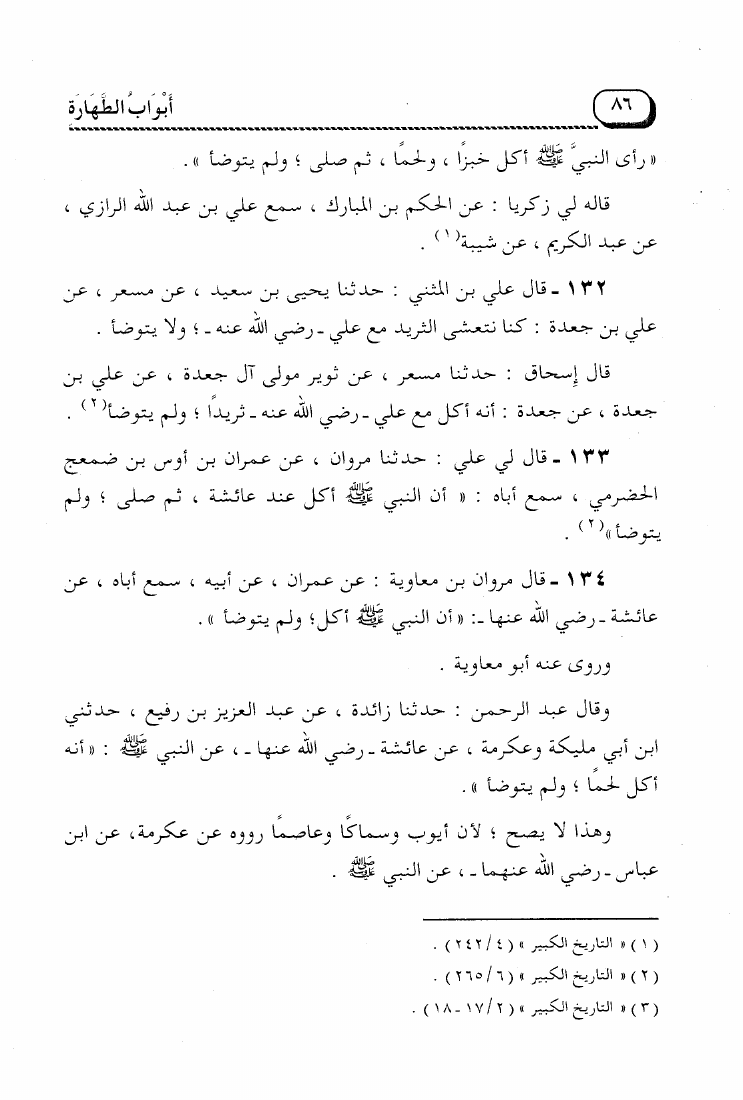 ٨٦
أَبْوَابُ الطَّهَارَة
« رأى النبيَّ ﷺ أكل خبزًا ، ولحمًا ، ثم صلى ؛ ولم يتوضأ » .
قاله لي زكريا : عن الحكم بن المبارك ، سمع علي بن عبد الله الرازي ،
عن عبد الكريم ، عن شيبة(١) .
١٣٢ ـ قال علي بن المثني : حدثنا يحيى بن سعيد ، عن مسعر ، عن
علي بن جعدة : كنا نتعشى الثريد مع علي ـ رضي الله عنه ـ ؛ ولا يتوضأ .
قال إسحاق : حدثنا مسعر ، عن ثوير مولى آل جعدة ، عن علي بن
جعدة ، عن جعدة : أنه أكل مع علي ـ رضي الله عنه ـ ثريدًا ؛ ولم يتوضأ(٢) .
١٣٣ ـ قال لي علي : حدثنا مروان ، عن عمران بن أوس بن ضمعج
الحضرمي ، سمع أباه : « أن النبي ﷺ أكل عند عائشة ، ثم صلى ؛ ولم
يتوضأ »(٢) .
١٣٤ ـ قال مروان بن معاوية : عن عمران ، عن أبيه ، سمع أباه ، عن
عائشة ـ رضي الله عنها ـ: « أن النبي ﷺ أكل؛ ولم يتوضأ » .
وروى عنه أبو معاوية .
وقال عبد الرحمن : حدثنا زائدة ، عن عبد العزيز بن رفيع ، حدثني
ابن أبي مليكة وعكرمة ، عن عائشة ـ رضي الله عنها ـ ، عن النبي ﷺ : « أنه
أكل لحمًا ؛ ولم يتوضأ » .
وهذا لا يصح ؛ لأن أيوب وسماكًا وعاصمًا رووه عن عكرمة، عن ابن
عباس ـ رضي الله عنهما ـ ، عن النبي ﷺ .
( ١ ) « التاريخ الكبير » ( ٤/ ٢٤٢ ) .
( ٢ ) « التاريخ الكبير » ( ٦/ ٢٦٥ ) .
( ٣ ) « التاريخ الكبير » ( ٢/ ١٧ـ ١٨ ) .